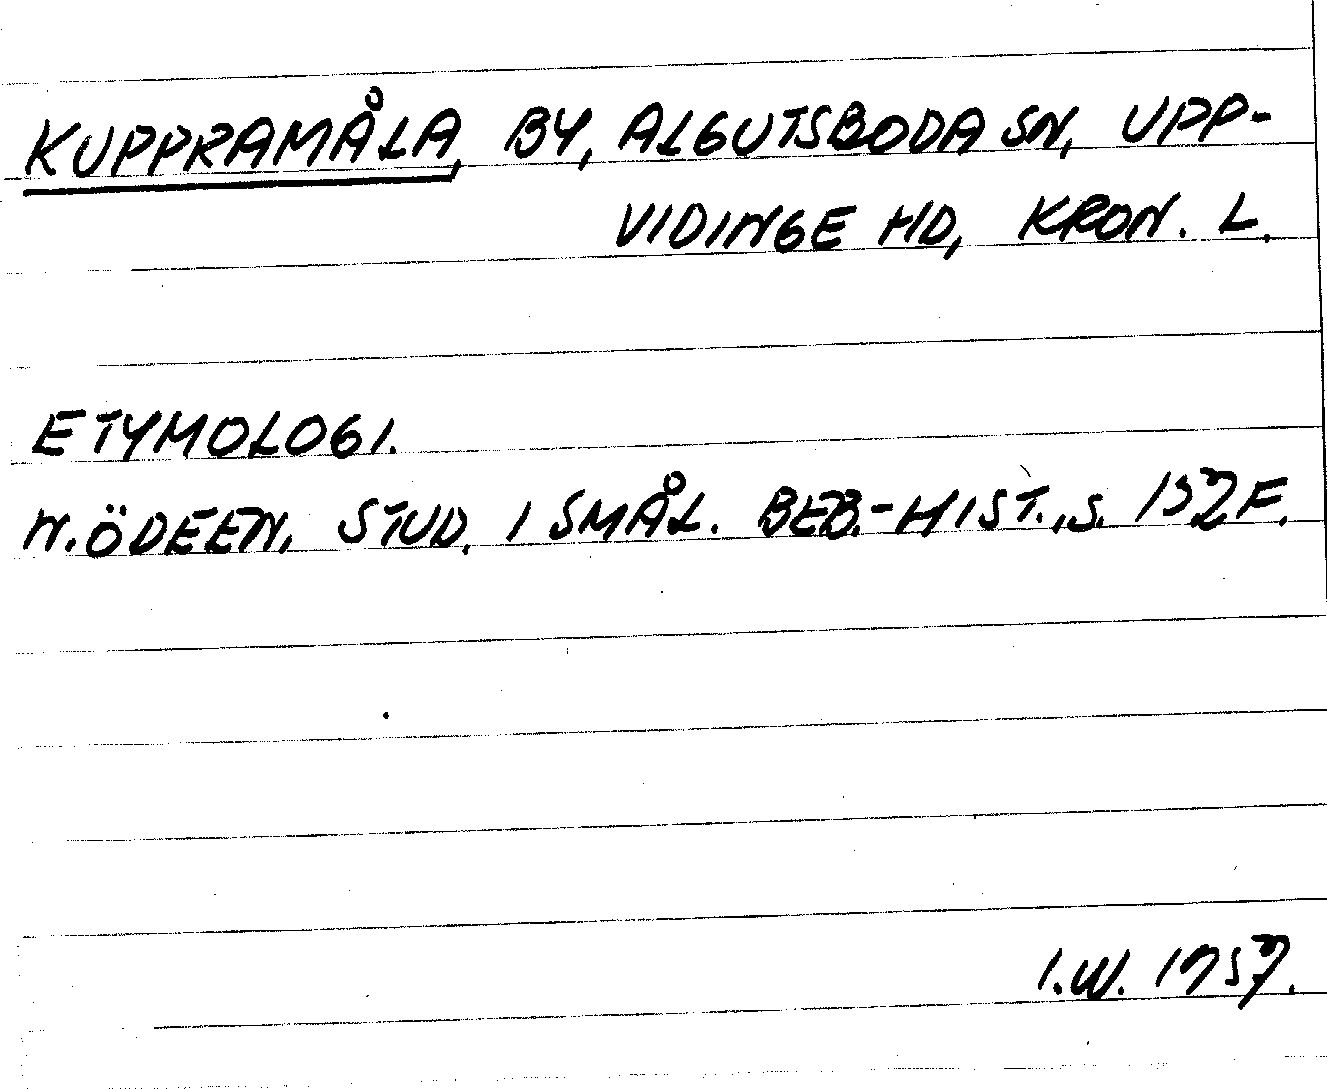 KUPPRAMÅLA, BY, ALGUTSBODA SN, UPP-
VIDINGE HD, KRON. L.
ETYMOLOGI.
N. ÖDEEN, STUD. I SMÅL. BEB.-HIST., S. 132 F.
I.W. 1957.